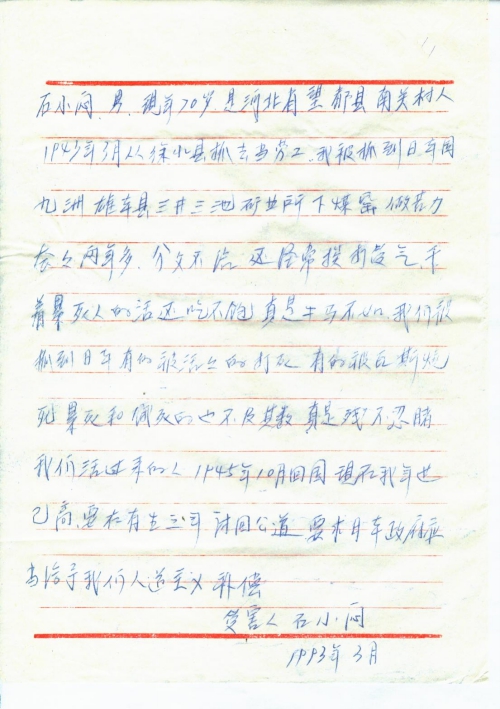 石小闷，男，现年70岁是河北省望都县南关村人
1943年3月从徐水县抓去当劳工，我被抓到日本国
九洲 雄本县三井三池矿业所下煤窑做苦力
长久两年多，分文不给 还经常挨打受气，干
着累死人的活还吃不饱 真是牛马不如，我们被
抓到日本有的被活活的打死 有的被瓦斯炮
死 累死和饿死的也不及其数 真是残不忍睹
我们活过来的人1945年10月回国 现在我年也
已高，要在有生之年 讨回公道 要求日本政府应
当给予我们人道主义补偿
受害人 石小闷
1993年3月